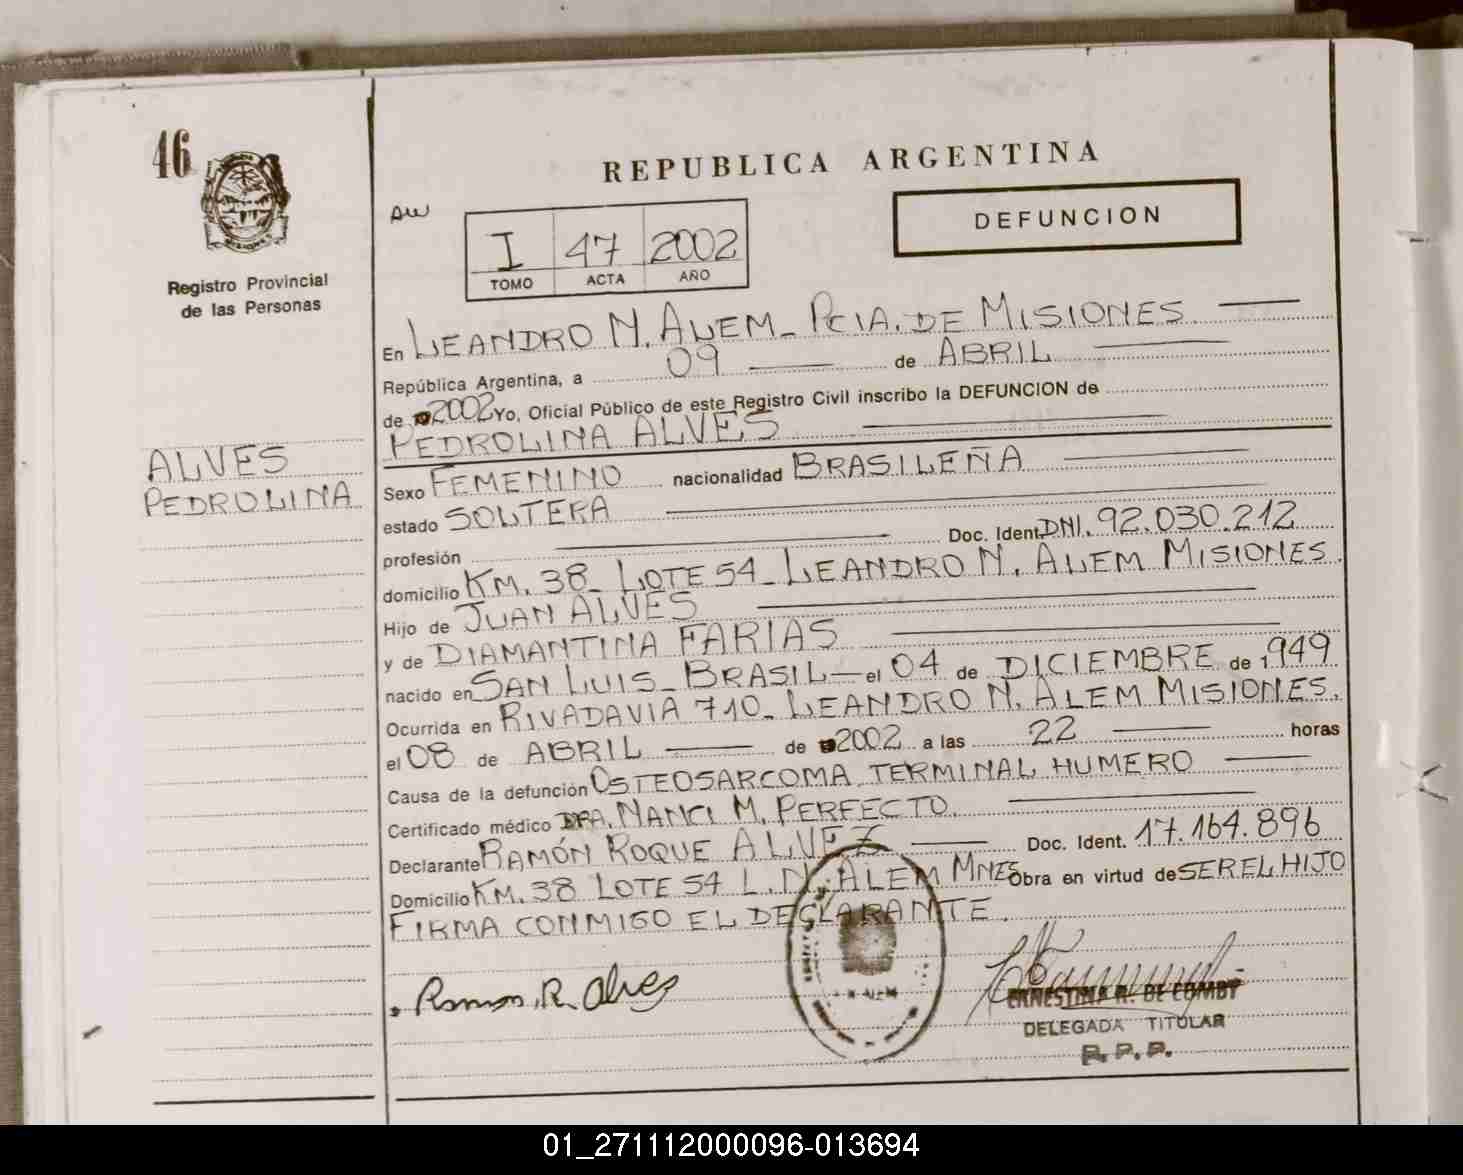 46
REPUBLICA ARGENTINA
DEFUNCION
I 47 2002
TOMO ACTA AÑO
Registro Provincial
de las Personas
En LEANDRO N. ALEM - PCIA. DE MISIONES
República Argentina, a 09 de ABRIL
de 2002 Yo, Oficial Público de este Registro Civil inscribo la DEFUNCION de
PEDROLINA ALVES
ALVES
PEDROLINA
Sexo FEMENINO nacionalidad BRASILEÑA
estado SOLTERA
profesión Doc. Ident. DNI. 92.030.212
domicilio KM. 38 - LOTE 54 - LEANDRO N. ALEM MISIONES.
Hijo de JUAN ALVES
y de DIAMANTINA FARIAS
nacido en SAN LUIS - BRASIL - el 04 de DICIEMBRE de 1.949
Ocurrida en RIVADAVIA 710 - LEANDRO N. ALEM MISIONES.
el 08 de ABRIL de 2002 a las 22 horas
Causa de la defunción OSTEOSARCOMA TERMINAL HUMERO
Certificado médico DRA. NANCI M. PERFECTO.
Declarante RAMÓN ROQUE ALVEZ Doc. Ident. 17.164.896
Domicilio KM. 38 LOTE 54 L.N. ALEM MNES Obra en virtud de SER EL HIJO
FIRMA CONMIGO EL DECLARANTE.
Ramon R. Alves
ERNESTINA R. DE COMBY
DELEGADA TITULAR
R.P.P.
01_271112000096-013694